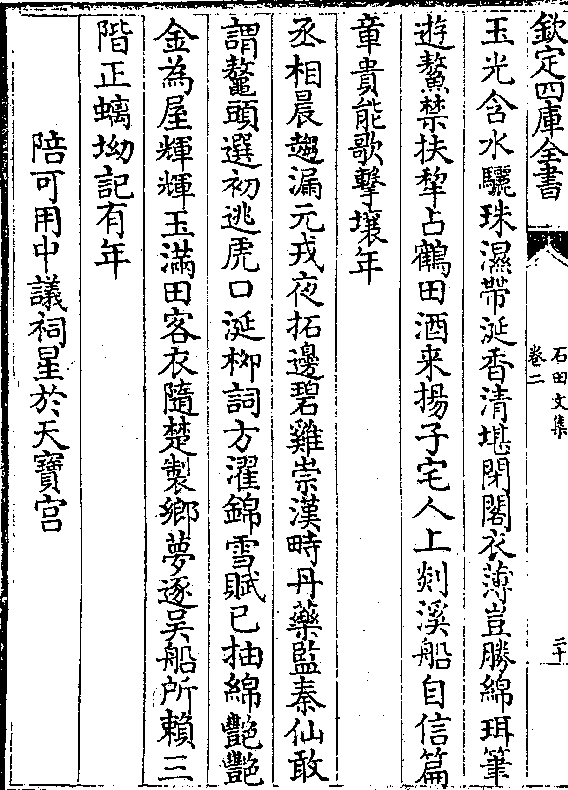 欽定四庫全書
石田文集
卷二
二十
玉光含水驪珠濕帶涎香清堪閉閣衣薄豈勝綿珥筆
遊鰲禁扶犂占鶴田酒来揚子宅人上剡溪船自信篇
章貴能歌擊壤年
丞相晨趨漏元戎夜拓邊碧雞崇漢畤丹藥監秦仙敢
謂鼇頭選初逃虎口涎柳詞方濯錦雪賦已抽綿艷艷
金為屋輝輝玉滿田客衣隨楚製鄉夢逐吳船所賴三
階正螭坳記有年
陪可用中議祠星於天寶宫